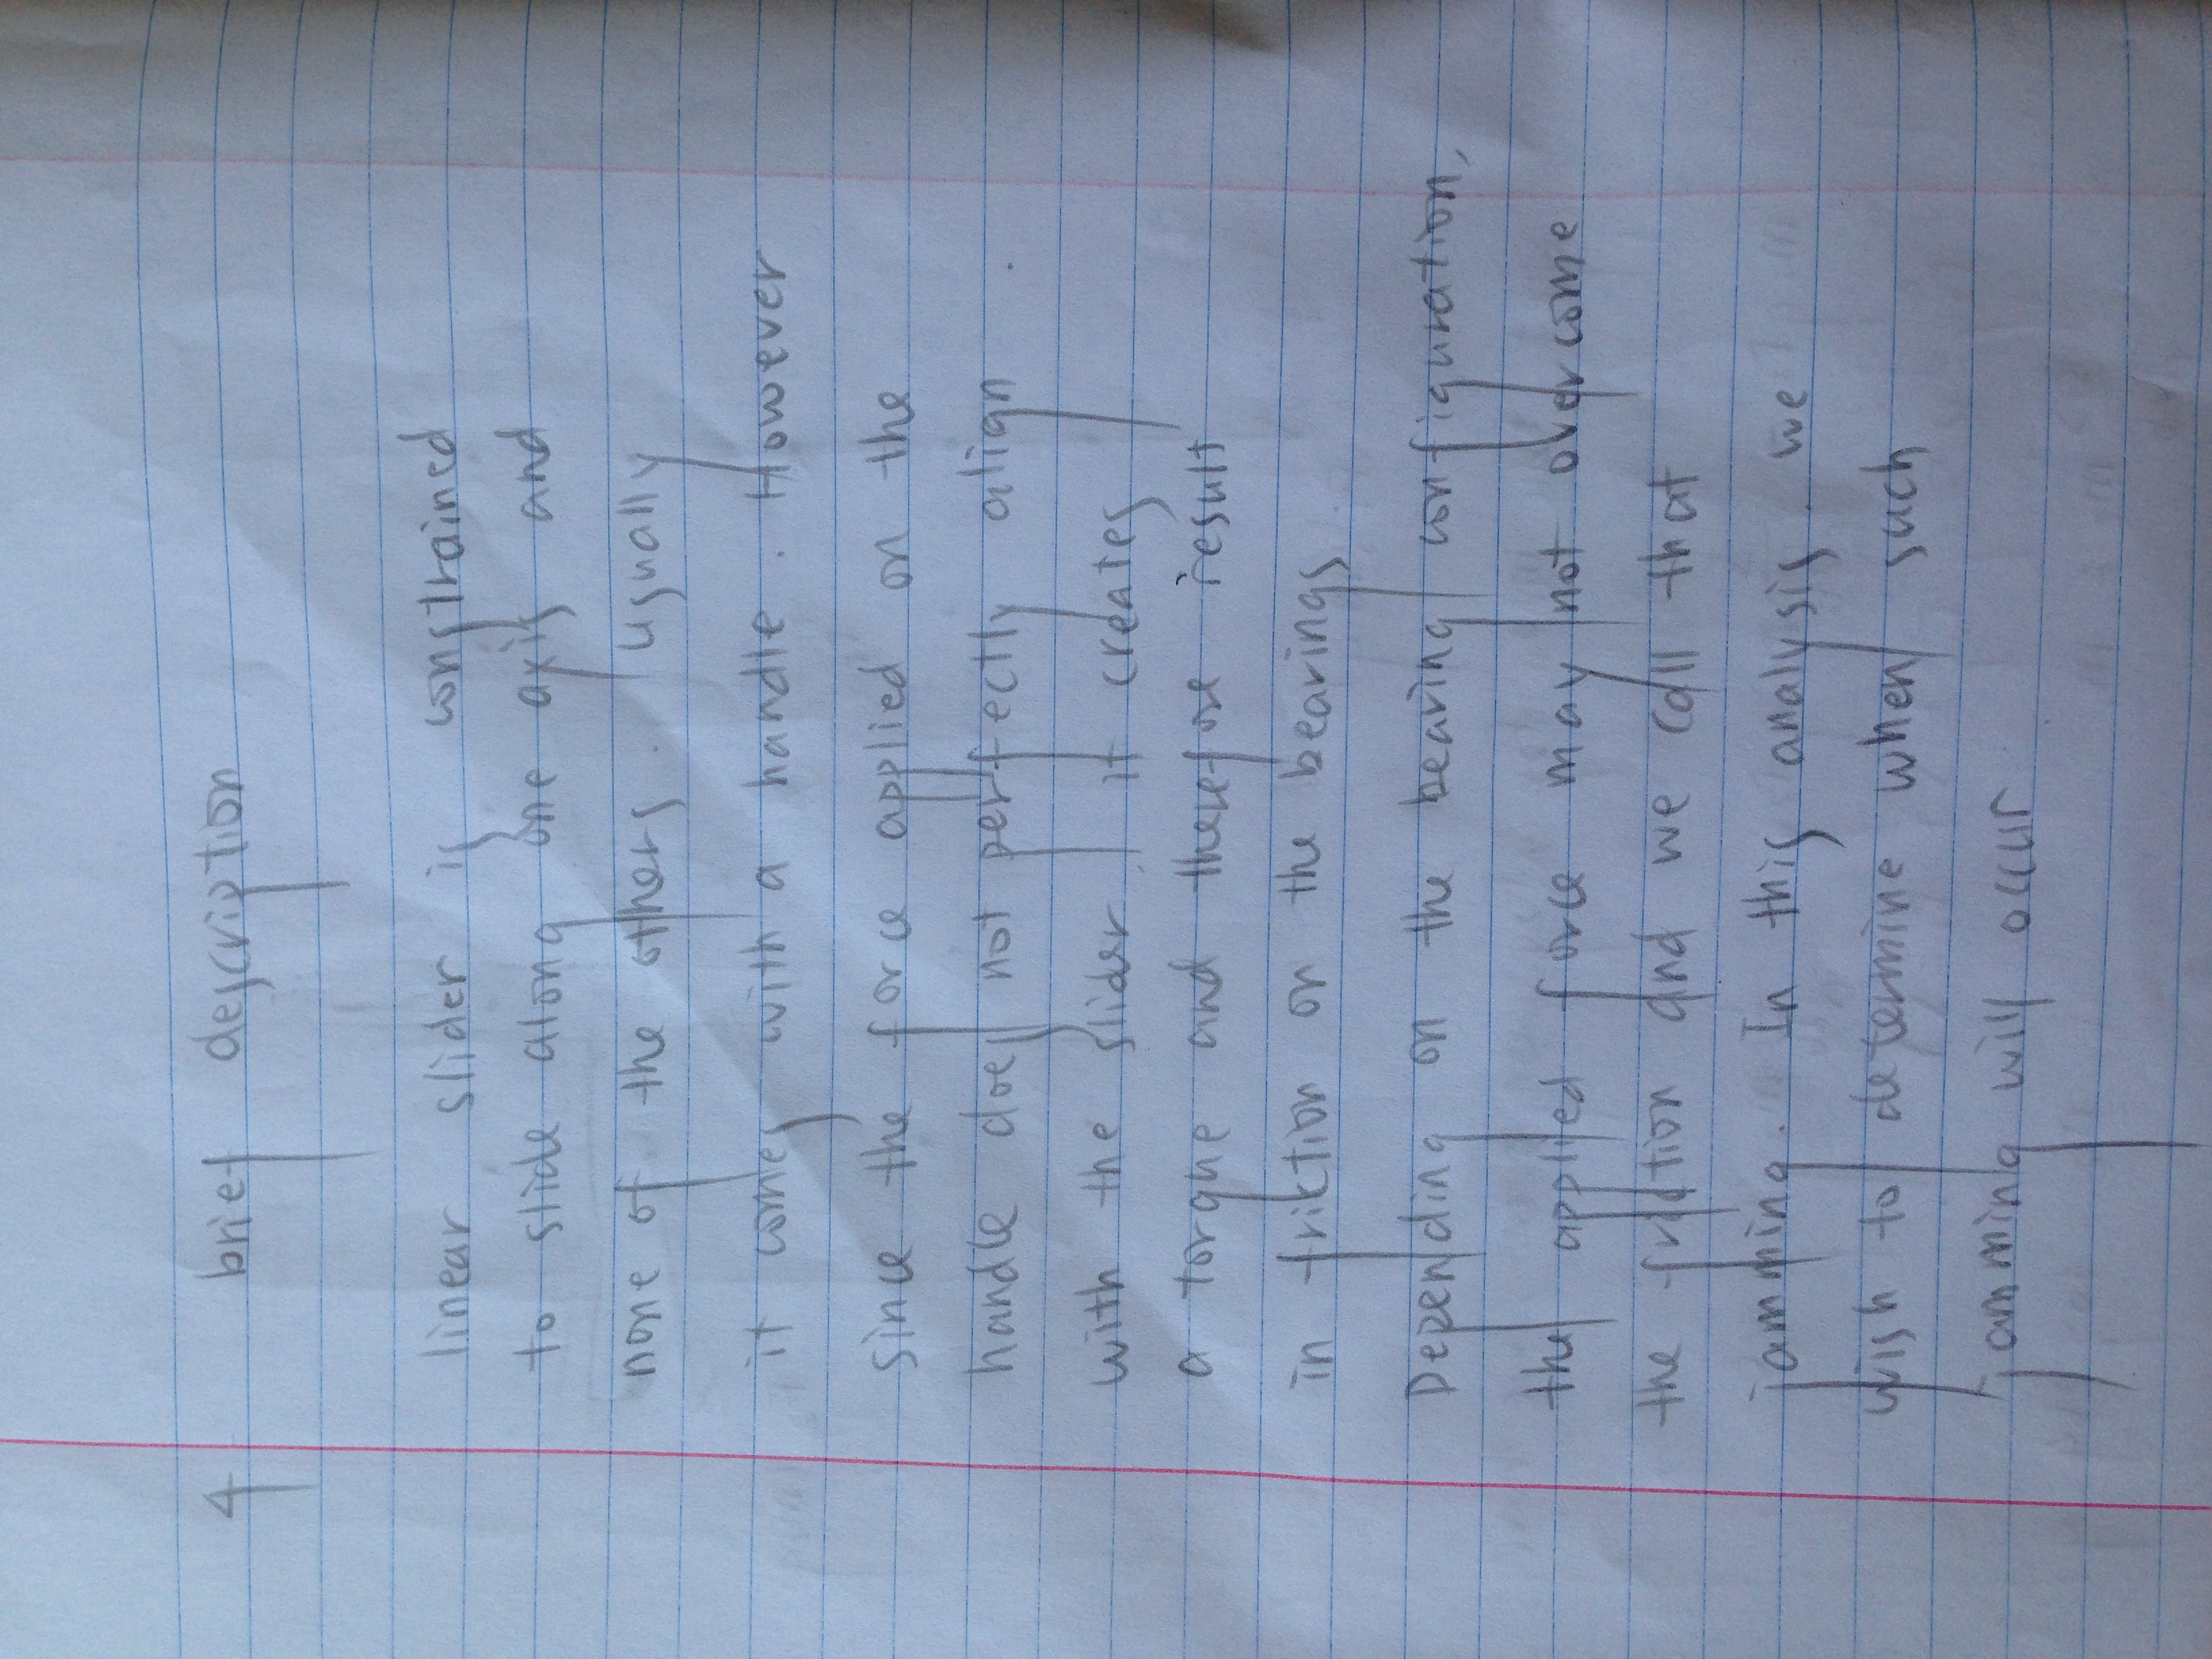 4 brief description
linear slider is constrained
to slide along one axis and
none of the others. usually
it comes with a handle. However
since the force applied on the
handle does not perfectly align
with the slider, it creates
a torque and therefore result
in friktion on the bearings
Depending on the bearing configuration,
the applied force may not overcome
the friction and we call that
jamming. In this analysis, we
wish to determine when such
jamming will occur